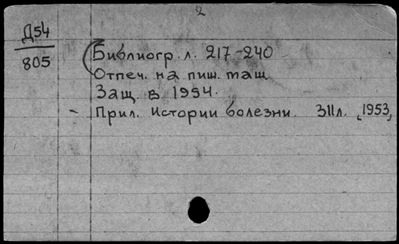 2
Д54
805
(Библиогр. л. 217-240
Отпеч. на пиш. маш.
Защ. в 1954.
- Прил. Истории болезни. 311л. [1953]